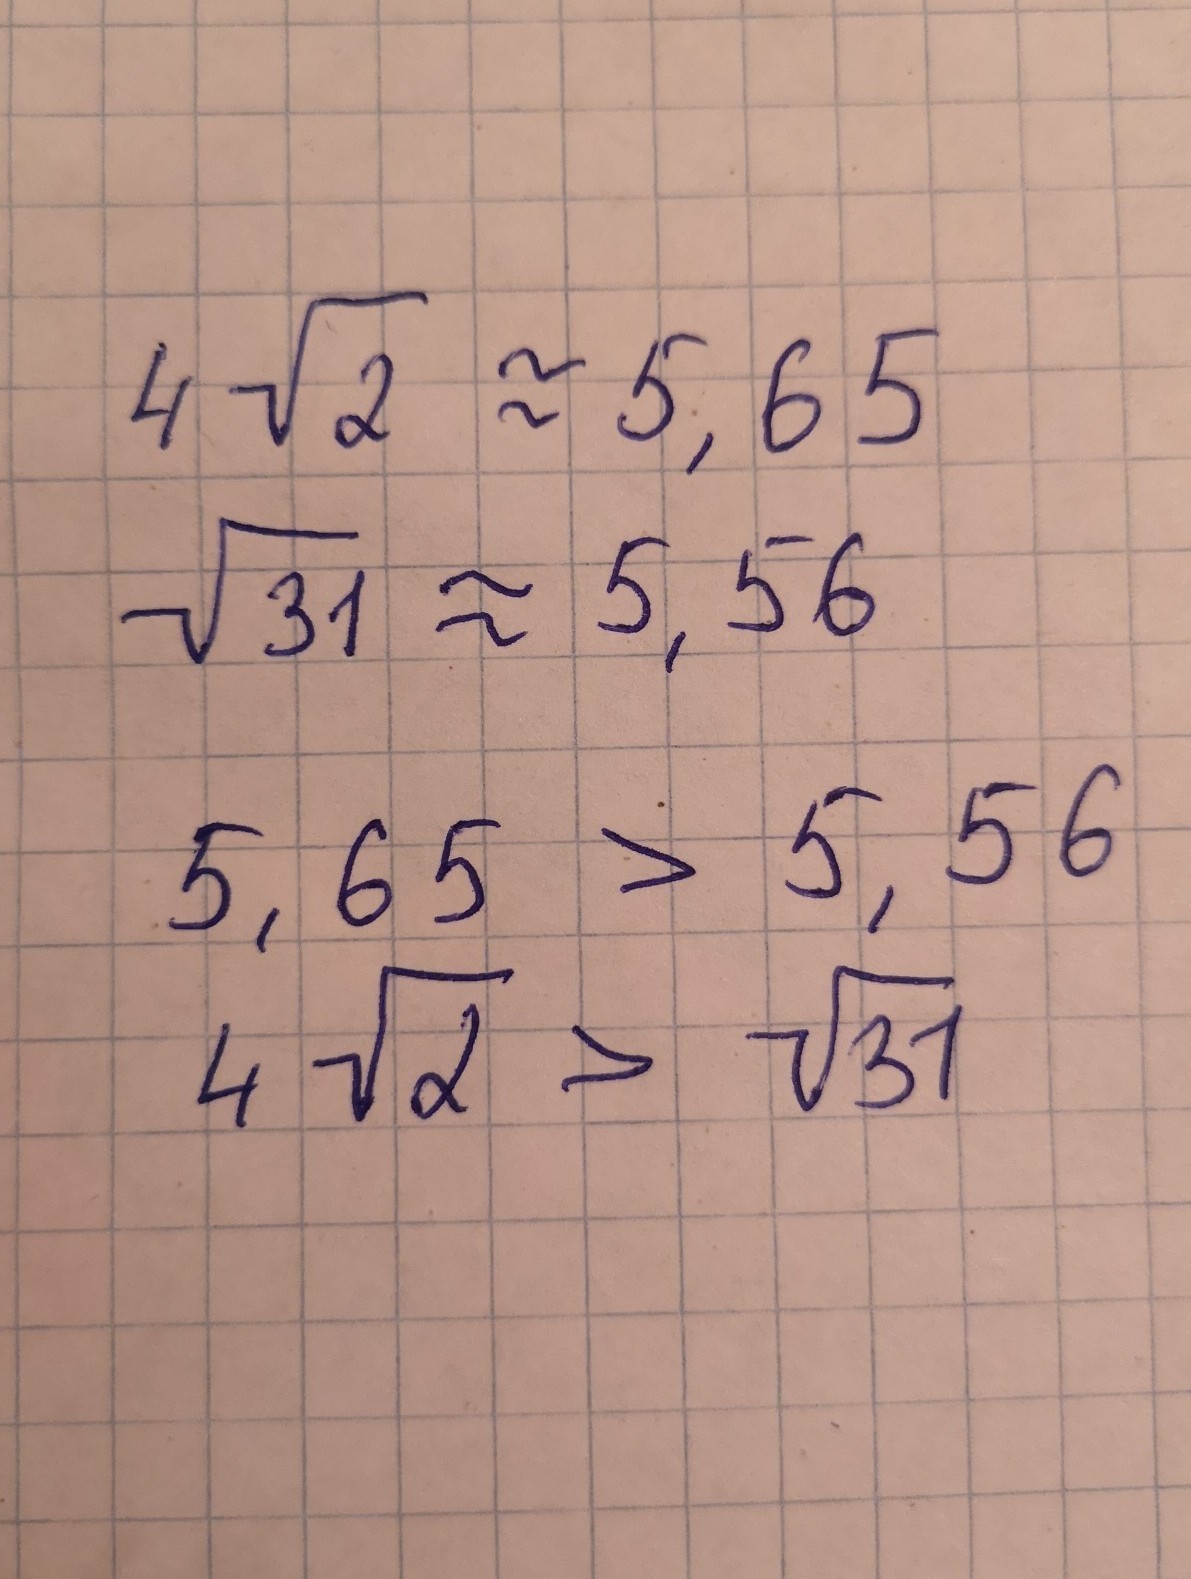 4√2 ≈ 5,65
√31 ≈ 5,56
5,65 > 5,56
4√2 > √31